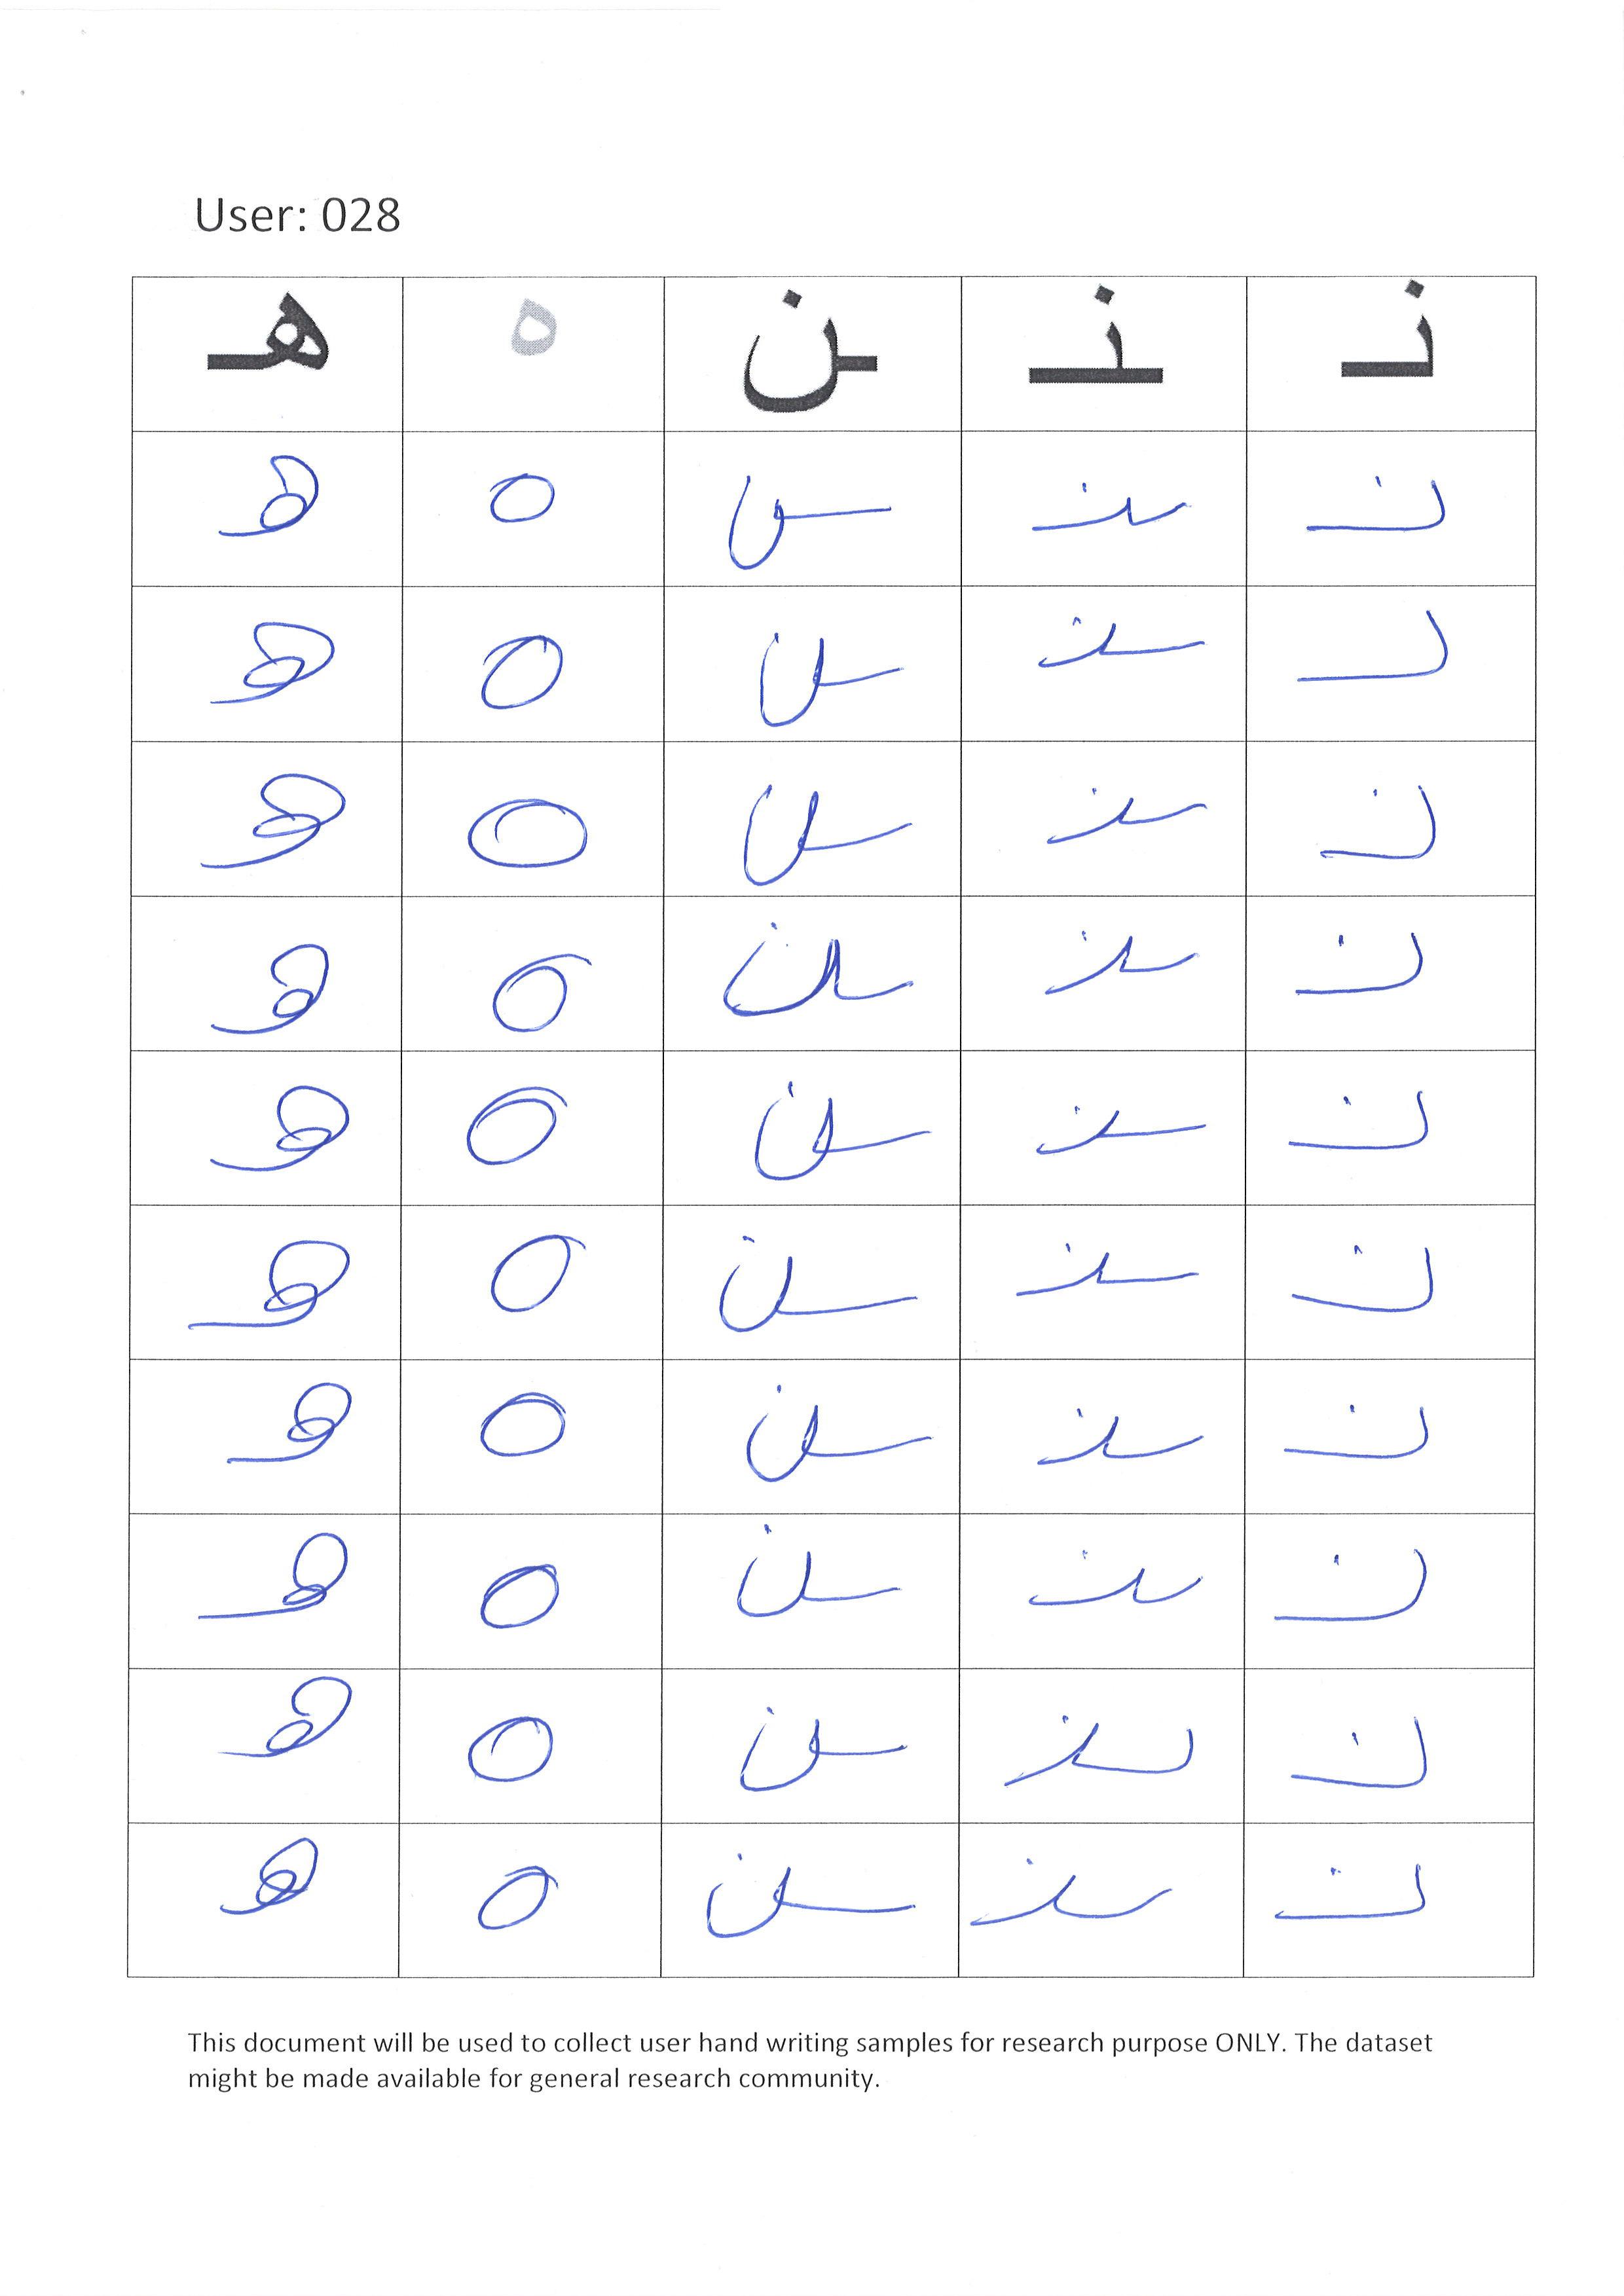 User: 028
نـ ـنـ ـن ه هـ
نـ ـنـ ـں ه هـ
لـ ـنـ ـن ه هـ
نـ ـنـ ـن ه هـ
نـ ـنـ ـن ه هـ
نـ ـنـ ـن ه هـ
نـ ـنـ ـن ه هـ
نـ ـنـ ـن ه هـ
نـ ـنـ ـن ه هـ
نـ ـنـ ـن ه هـ
نـ ـنـ ـن ه هـ
This document will be used to collect user hand writing samples for research purpose ONLY. The dataset
might be made available for general research community.